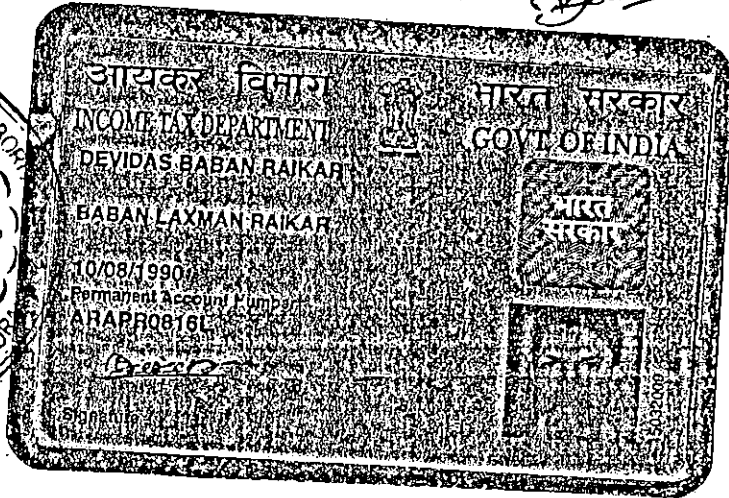 आयकर विभाग
भारत सरकार
INCOME TAX DEPARTMENT
GOVT OF INDIA
DEVIDAS BABAN RAIKAR
BABAN LAXMAN RAIKAR
भारत
सरकार
10/08/1990
Permanent Account Number
Signature